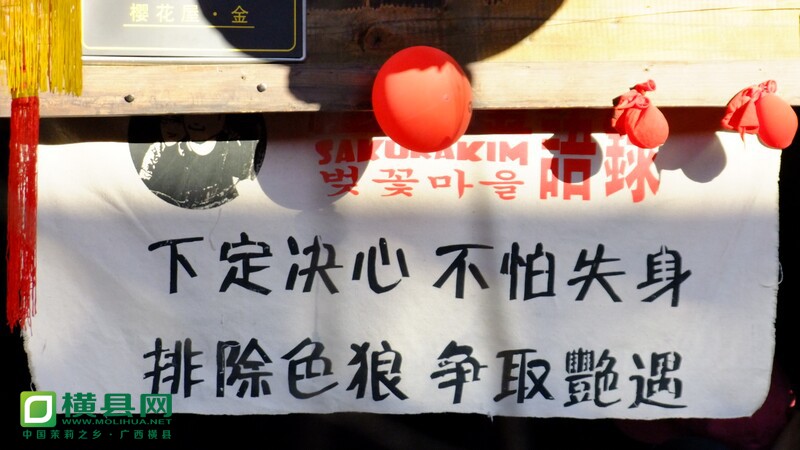 樱花屋·金
SAKURAKIM
벚꽃마을
語録
下定决心 不怕失身
排除色狼 争取艷遇
横县网
WWW.MOLIHUA.NET
中国茉莉之乡·广西横县